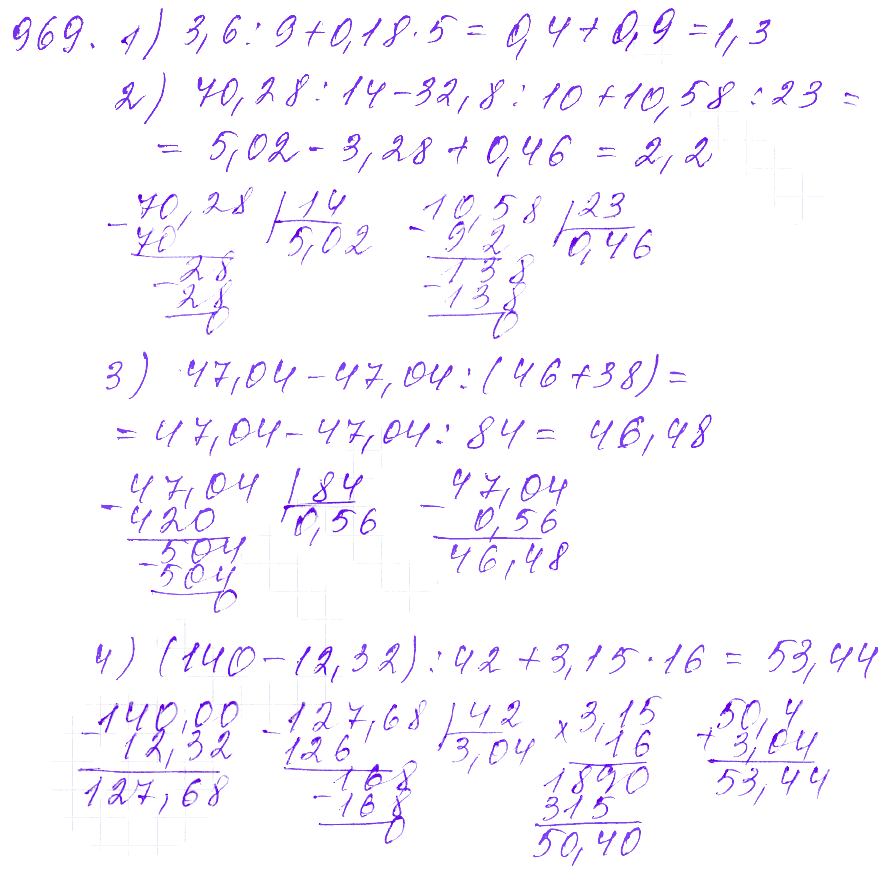 969. 1) 3,6 : 9 + 0,18 · 5 = 0,4 + 0,9 = 1,3
2) 70,28 : 14 - 32,8 : 10 + 10,58 : 23 =
= 5,02 - 3,28 + 0,46 = 2,2
- 70,28 | 14
70 5,02
- 28
28
0
- 10,58 | 23
9 2 0,46
- 138
138
0
3) 47,04 - 47,04 : (46 + 38) =
= 47,04 - 47,04 : 84 = 46,48
- 47,04 | 84
420 0,56
- 504
504
0
- 47,04
0,56
46,48
4) (140 - 12,32) : 42 + 3,15 · 16 = 53,44
- 140,00
12,32
127,68
- 127,68 | 42
126 3,04
- 168
168
0
× 3,15
16
1890
315
50,40
+ 50,4
3,04
53,44